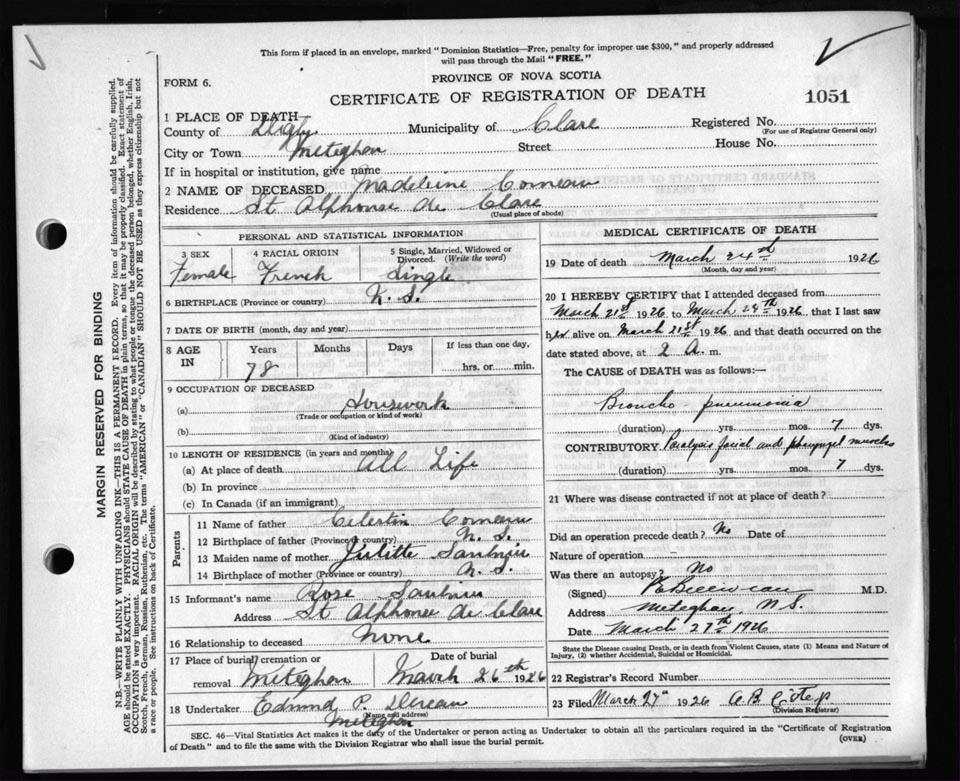 This form if placed in an envelope, marked "Dominion Statistics—Free, penalty for improper use $300," and properly addressed
will pass through the Mail "FREE."
PROVINCE OF NOVA SCOTIA
FORM 6.
CERTIFICATE OF REGISTRATION OF DEATH
1051
1 PLACE OF DEATH
County of Digby Municipality of Clare Registered No.
(For use of Registrar General only)
City or Town Meteghan Street House No.
If in hospital or institution, give name
2 NAME OF DECEASED Madeleine Comeau
Residence St Alphonse de Clare
(Usual place of abode)
PERSONAL AND STATISTICAL INFORMATION
3 SEX 4 RACIAL ORIGIN 5 Single, Married, Widowed or
Divorced. (Write the word)
Female French Single
6 BIRTHPLACE (Province or country) N.S.
7 DATE OF BIRTH (month, day and year)
8 AGE IN Years Months Days If less than one day,
78 hrs. or min.
9 OCCUPATION OF DECEASED
(a) Housework
(Trade or occupation or kind of work)
(b)
(Kind of industry)
10 LENGTH OF RESIDENCE (in years and months)
(a) At place of death All Life
(b) In province
(c) In Canada (if an immigrant)
Parents
11 Name of father Celestin Comeau
12 Birthplace of father (Province or country) N.S.
13 Maiden name of mother Julitte Saulnier
14 Birthplace of mother (Province or country) N.S.
15 Informant's name Rose Saulnier
Address St Alphonse de Clare
16 Relationship to deceased None
17 Place of burial, cremation or Date of burial
removal Meteghan March 26th 1926
18 Undertaker Edmund P.
(Name and address)
Meteghan
MEDICAL CERTIFICATE OF DEATH
19 Date of death March 24th 1926
(Month, day and year)
20 I HEREBY CERTIFY that I attended deceased from
March 21st 1926 to March 24th 1926, that I last saw
her alive on March 21st 1926 and that death occurred on the
date stated above, at 2 A. m.
The CAUSE of DEATH was as follows:—
Broncho-pneumonia
(duration) yrs. mos. 7 dys.
CONTRIBUTORY Paralysis facial and pharyngeal muscles
(duration) yrs. mos. 7 dys.
21 Where was disease contracted if not at place of death?
Did an operation precede death? No Date of
Nature of operation
Was there an autopsy? No
(Signed) M.D.
Address Meteghan, N.S.
Date March 27th 1926
State the Disease causing Death, or in death from Violent Causes, state (1) Means and Nature of
Injury, (2) whether Accidental, Suicidal or Homicidal.
22 Registrar's Record Number
23 Filed March 27th 1926 A.B.
(Division Registrar)
SEC. 46—Vital Statistics Act makes it the duty of the Undertaker or person acting as Undertaker to obtain all the particulars required in the "Certificate of Registration
of Death" and to file the same with the Division Registrar who shall issue the burial permit.
(OVER)
MARGIN RESERVED FOR BINDING
N.B.—WRITE PLAINLY WITH UNFADING INK—THIS IS A PERMANENT RECORD. Every item of information should be carefully supplied.
AGE should be stated EXACTLY. PHYSICIANS should STATE CAUSE OF DEATH in plain terms, so that it may be properly classified. Exact statement of
OCCUPATION is very important. RACIAL ORIGIN will be described by stating to what people or tongue the deceased person belonged, whether English, Irish,
Scotch, French, German, Russian, Ruthenian, etc. The terms "AMERICAN" or "CANADIAN" SHOULD NOT BE USED as they express citizenship but not
a race or people. See instructions on back of Certificate.